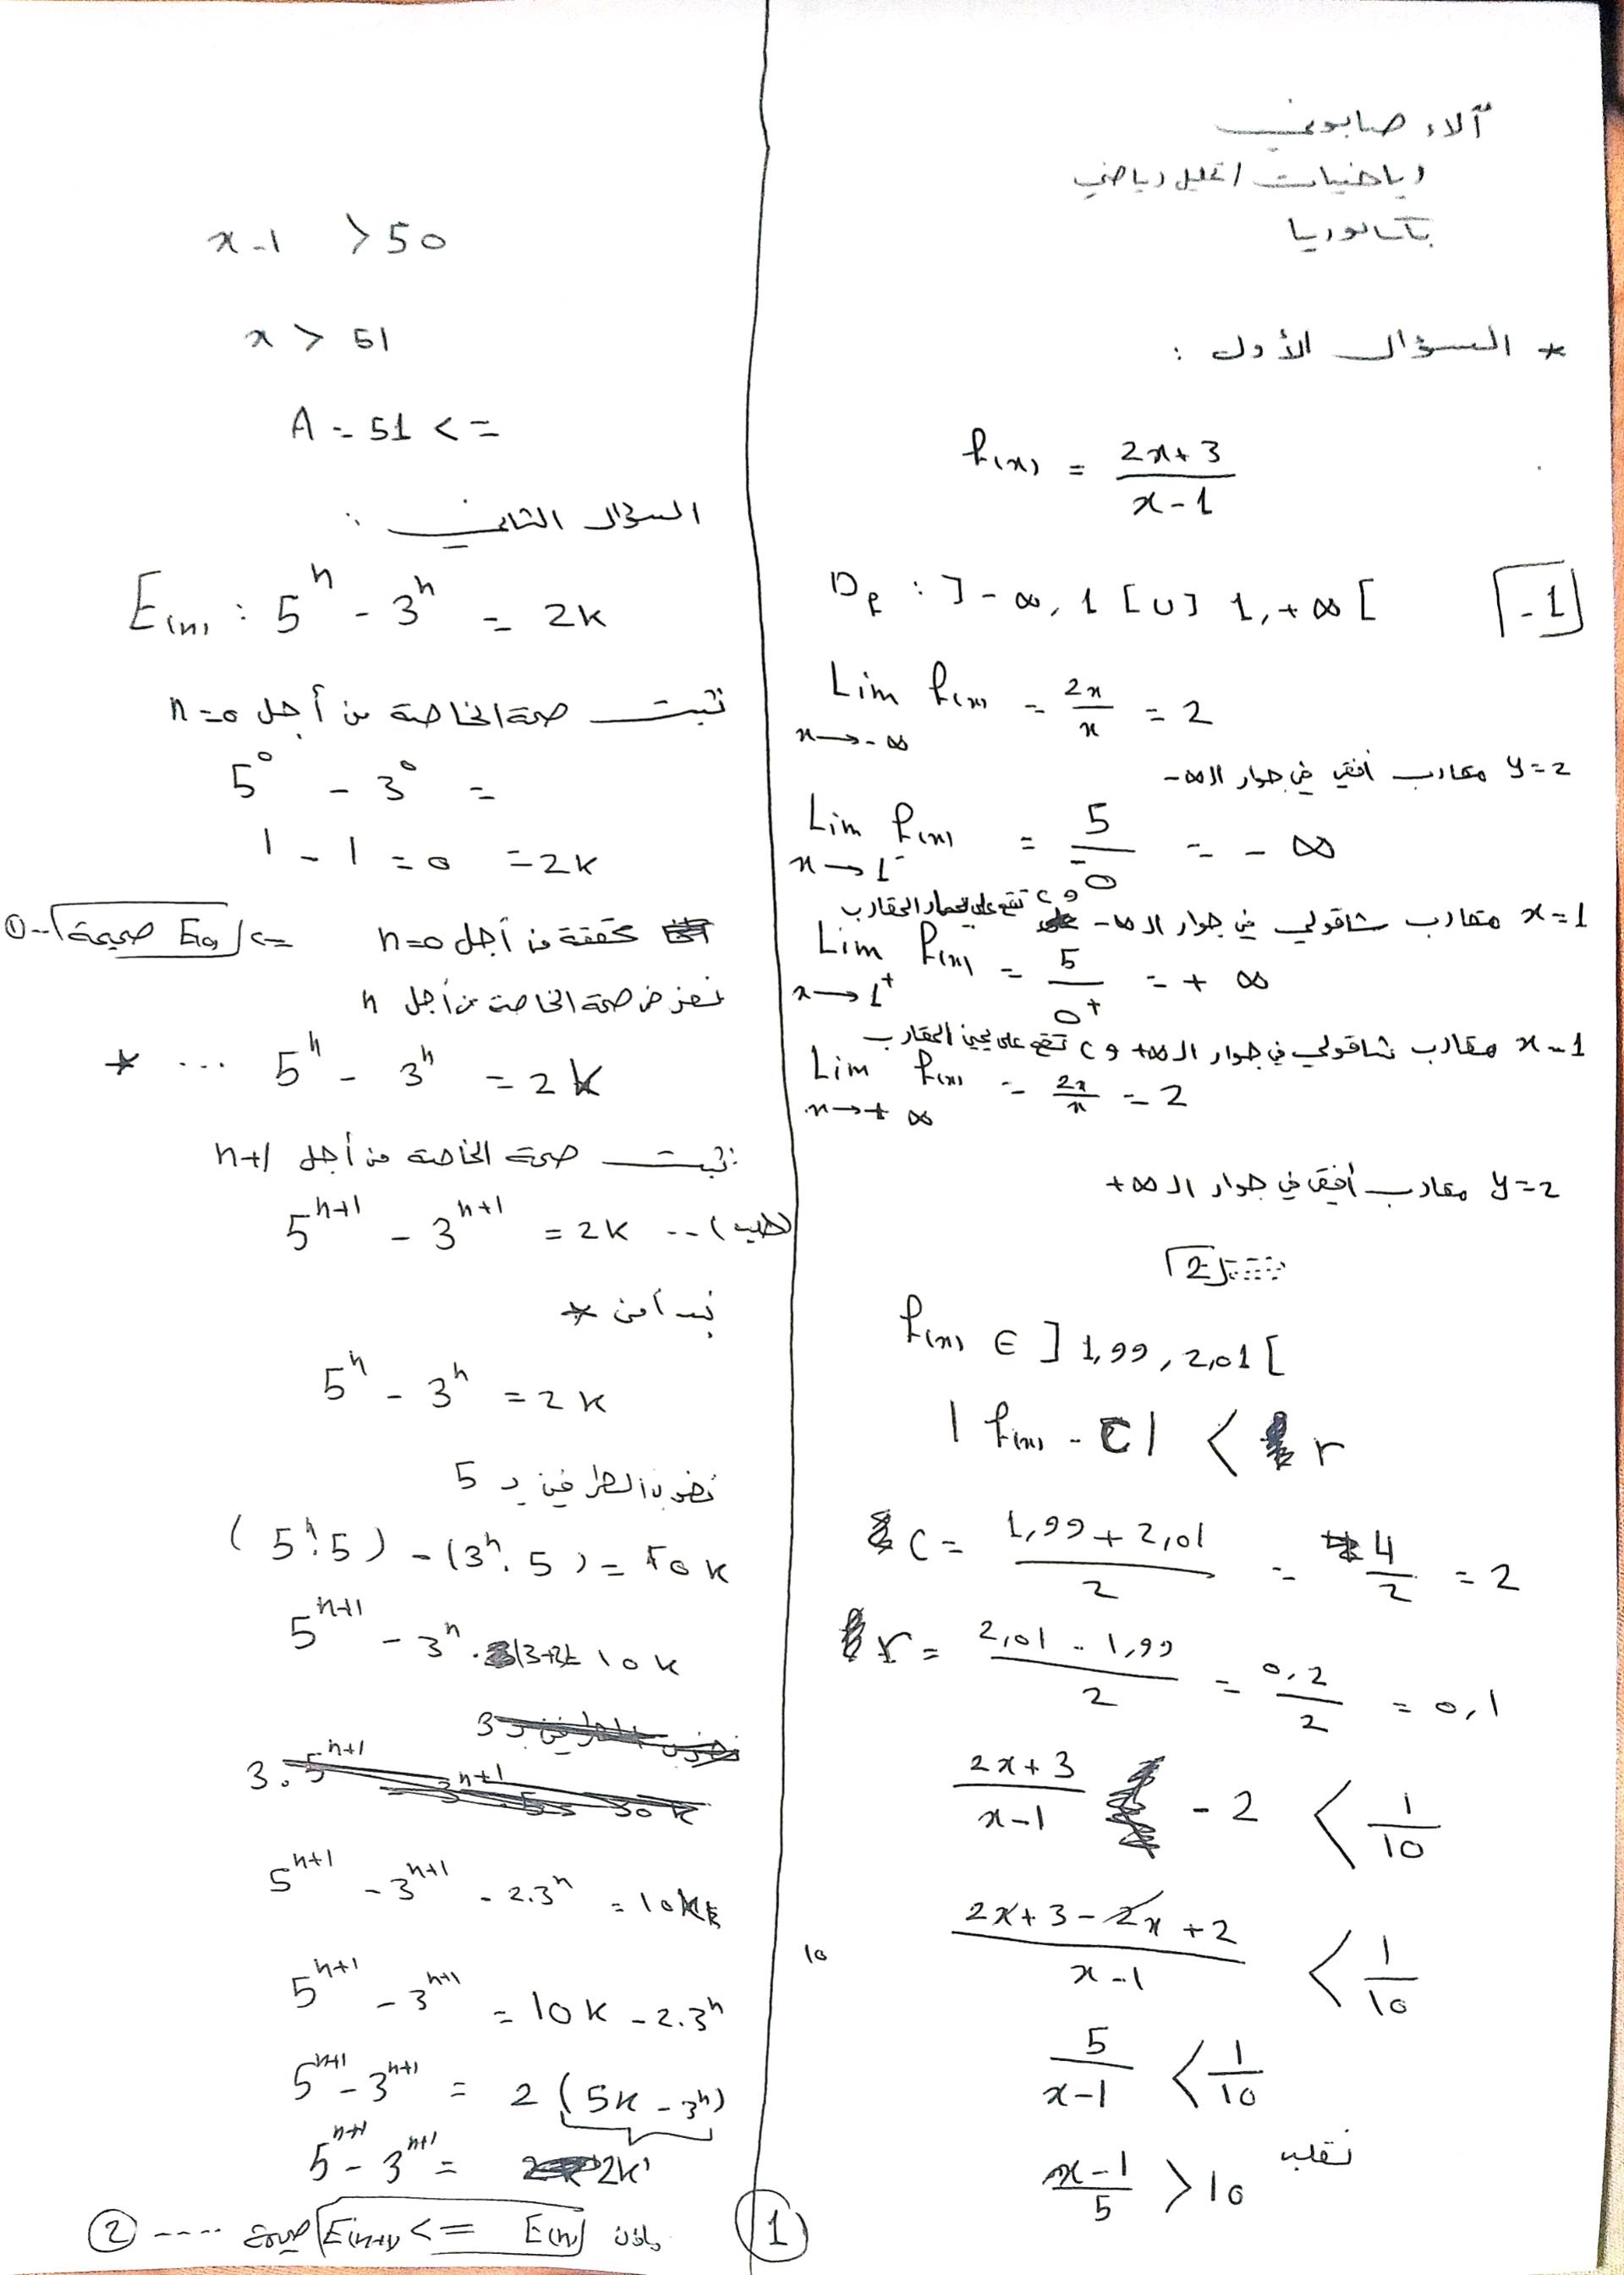 آلاء صابوني
رياضيات / تحليل رياضي
بكالوريا
* السؤال الأول :
f(x) = (2x+3)/(x-1)
1- D_f : ]-∞, 1[ U ]1, +∞[
Lim f(x) = 2x/x = 2
x→-∞
y=2 مقارب أفقي في جوار الـ ∞-
Lim f(x) = 5/0⁻ = -∞
x→1⁻
x=1 مقارب شاقولي في جوار الـ ∞- و C تقع على يسار المقارب
Lim f(x) = 5/0⁺ = +∞
x→1⁺
x=1 مقارب شاقولي في جوار الـ ∞+ و C تقع على يمين المقارب
Lim f(x) = 2x/x = 2
x→+∞
y=2 مقارب أفقي في جوار الـ ∞+
2
f(x) ∈ ]1,99 , 2,01[
|f(x) - C| < r
C = (1,99+2,01)/2 = 4/2 = 2
r = (2,01-1,99)/2 = 0,2/2 = 0,1
(2x+3)/(x-1) - 2 < 1/10
10
(2x+3-2x+2)/(x-1) < 1/10
5/(x-1) < 1/10
نقلب (x-1)/5 > 10
1
x-1 > 50
x > 51
A = 51 <=
السؤال الثاني :
E(n) : 5ⁿ - 3ⁿ = 2k
نثبت صحة الخاصة من أجل n=0
5⁰ - 3⁰ =
1 - 1 = 0 = 2k
محققة من أجل n=0 <= E(0) صحيحة --①
نفرض صحة الخاصة من أجل n
5ⁿ - 3ⁿ = 2k ... *
نثبت صحة الخاصة من أجل n+1
5ⁿ⁺¹ - 3ⁿ⁺¹ = 2k -- (طلب)
نبدأ من *
5ⁿ - 3ⁿ = 2k
نضرب الطرفين بـ 5
(5ⁿ.5) - (3ⁿ.5) = 10k
5ⁿ⁺¹ - 3ⁿ.(3+2) = 10k
نضرب الطرفين بـ 3
3.5ⁿ⁺¹ - 3ⁿ⁺¹.5 = 30k
5ⁿ⁺¹ - 3ⁿ⁺¹ - 2.3ⁿ = 10k
5ⁿ⁺¹ - 3ⁿ⁺¹ = 10k - 2.3ⁿ
5ⁿ⁺¹ - 3ⁿ⁺¹ = 2(5k - 3ⁿ)
5ⁿ⁺¹ - 3ⁿ⁺¹ = 2k'
بإذن E(n) => E(n+1) صحيحة ---- ②